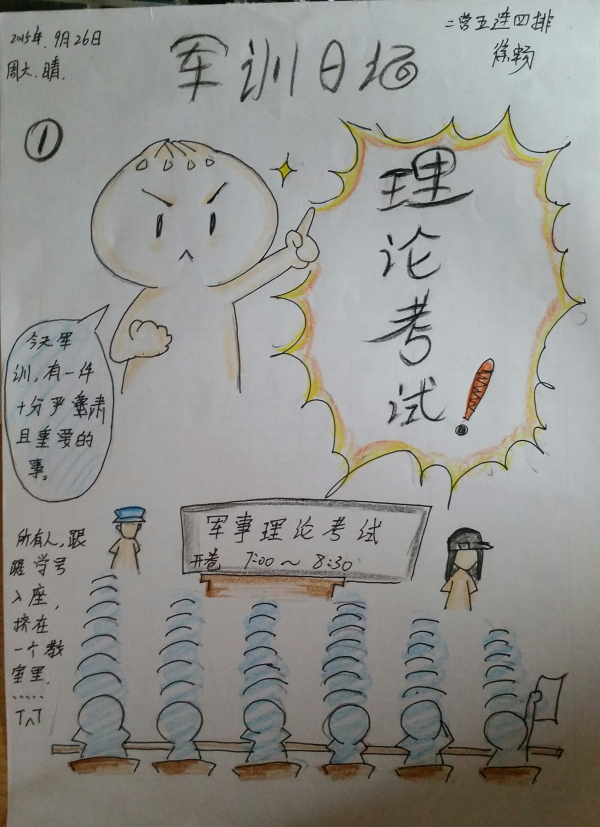 2015年.9月26日
周六.晴.
军训日报
二营五连四排
徐畅
①
理论考试!
今天军
训,有一件
十分严肃
且重要的
事。
军事理论考试
开卷 7:00~8:30
所有人,跟
随学号
入座,
挤在
一个教
室里.
.....
T^T